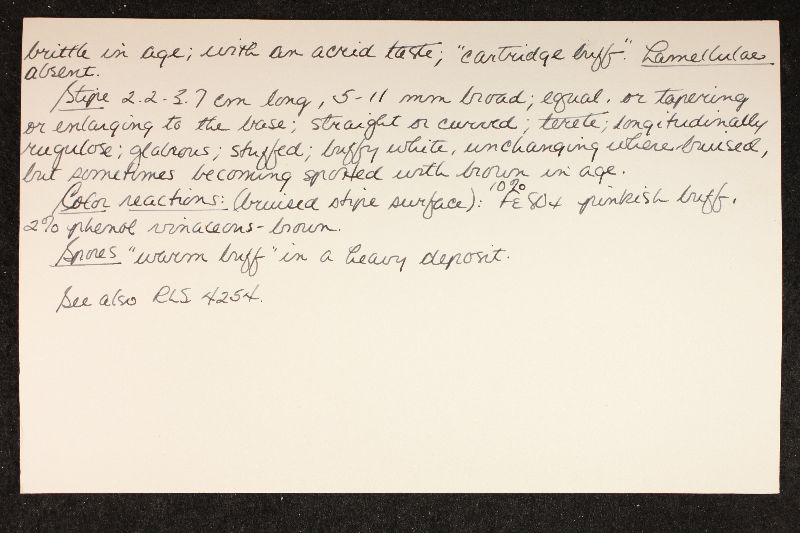 brittle in age; with an acrid taste; "cartridge buff". Lamellulae
absent.
Stipe 2.2-3.7 cm long, 5-11 mm broad; equal, or tapering
or enlarging to the base; straight or curved; terete; longitudinally
rugulose; glabrous; stuffed; buffy white, unchanging where bruised,
but sometimes becoming spotted with brown in age.
Color reactions: (bruised stipe surface): 10% FeSO4 pinkish buff.
2% phenol vinaceous-brown.
Spores "warm buff" in a heavy deposit.
See also RLS 4254.